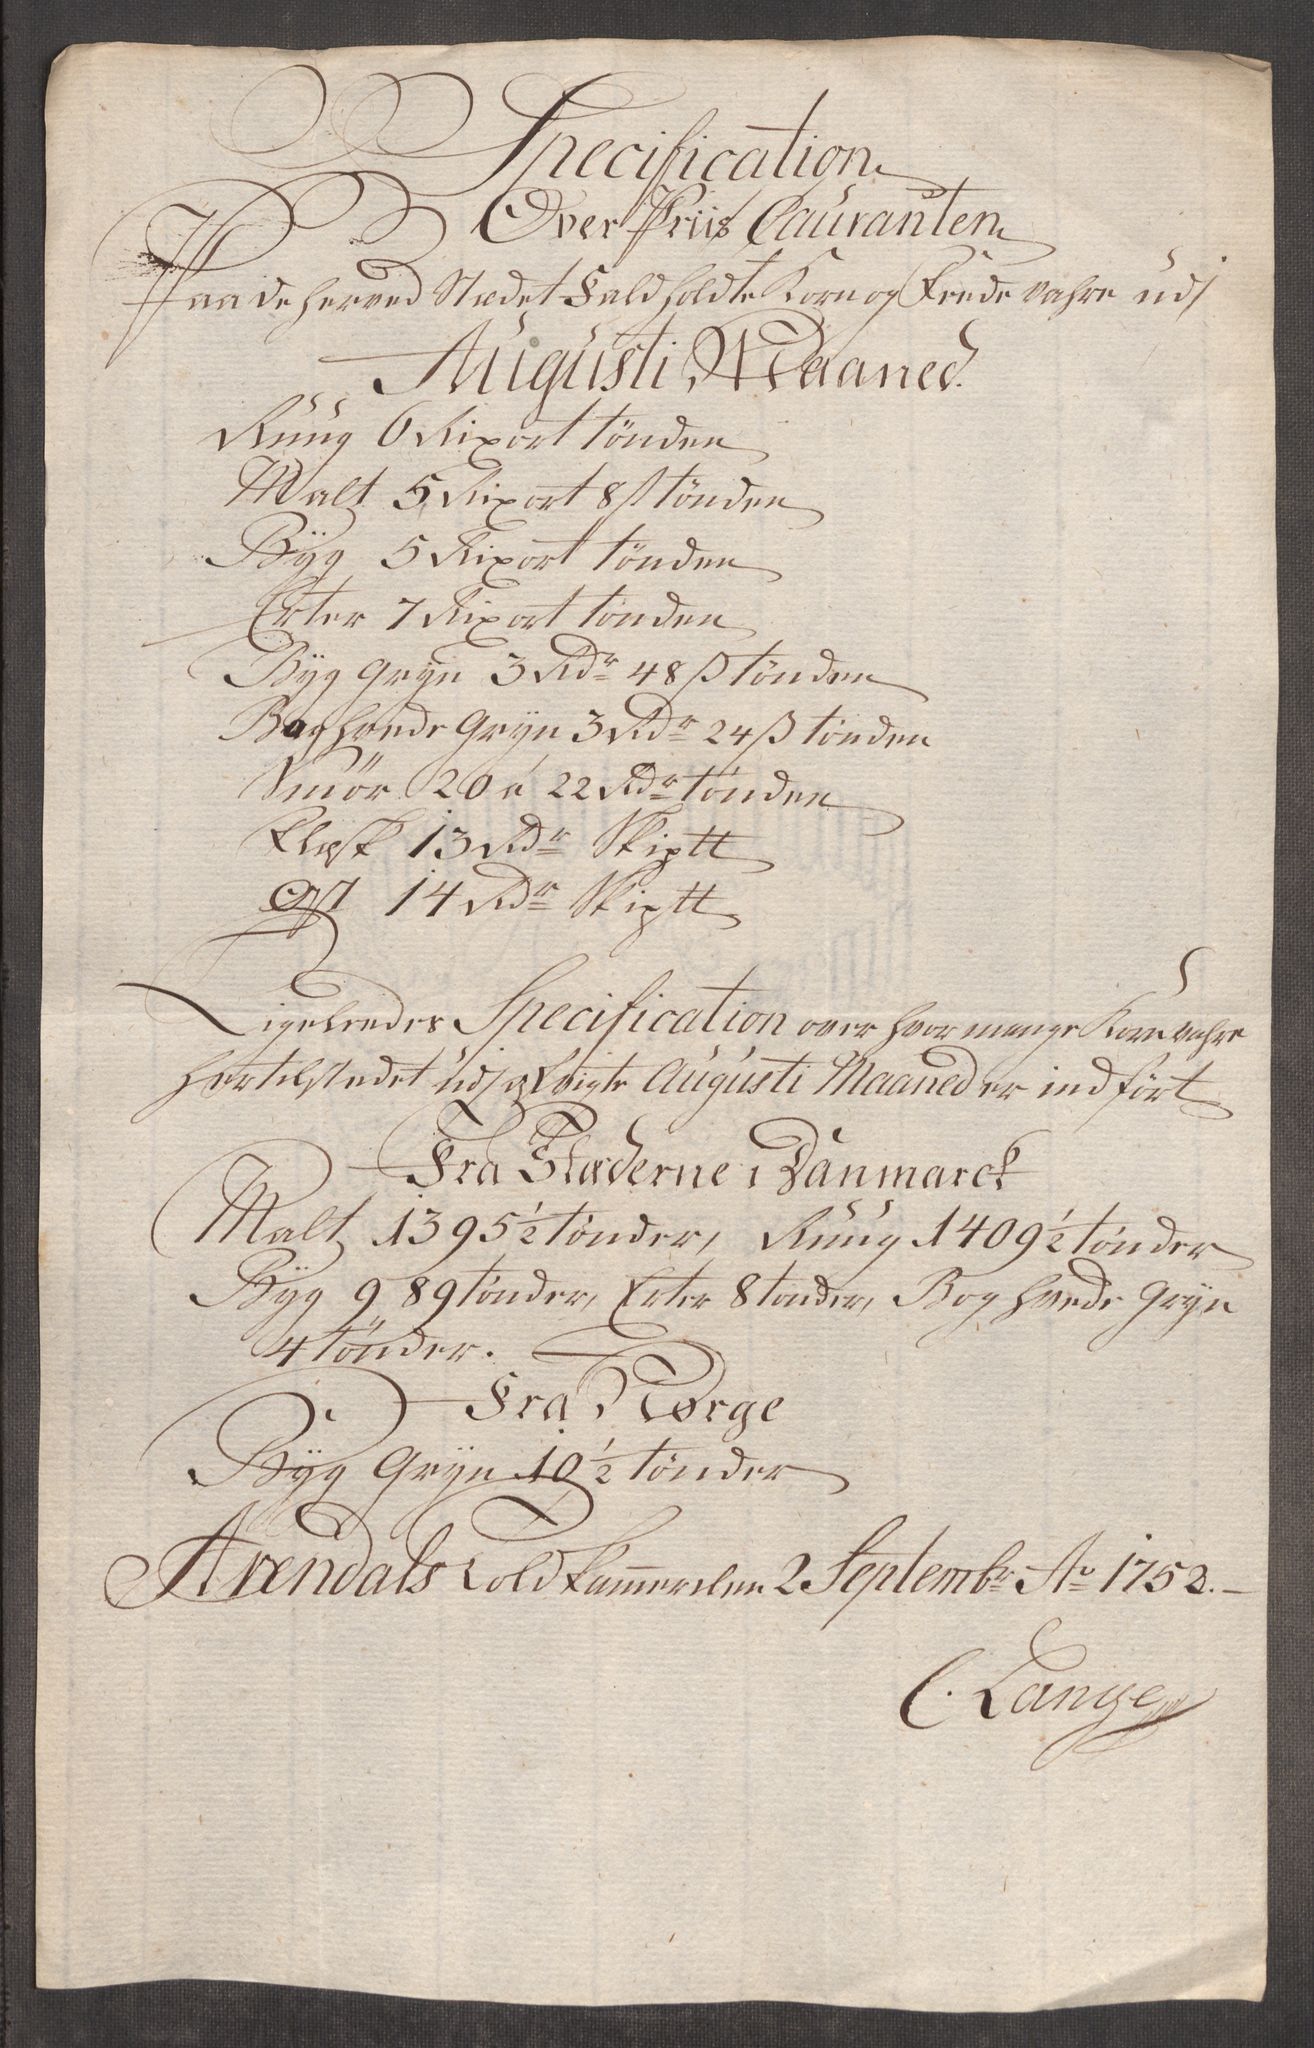 Specification
Over Priis Couranten
Paa de her ved Stædet Fald holdte Korn og Fede vahre udj
Augusti Maaned.
Ruug 6 Rixort tønden
Malt 5 Rixort 8 ß tønden
Byg 5 Rixort tønden
Erter 7 Rixort tønden
Byg Gryn 3 Rdr 48 ß tønden
Boghvede Gryn 3 Rdr 24 ß tønden
Smør 20 a 22 Rdr tønden
Flæsk 13 Rdr Skiptt
Ost 14 Rdr Skiptt
Ligeleedes Specification over hvor mange Korn vahre
hertil stedet udj Augusti Maaned er ind ført
Fra Stæderne i Danmarck
Malt 1395½ tønder, Ruug 1409½ tønder
Byg 989 tønder, Erter 8 tønder, Boghvede Gryn
4 tønder.
Fra Norge
Byg Gryn 10½ tønder
Arendals Told Kammer den 2 Septembr Ao 1752.
C. Lange